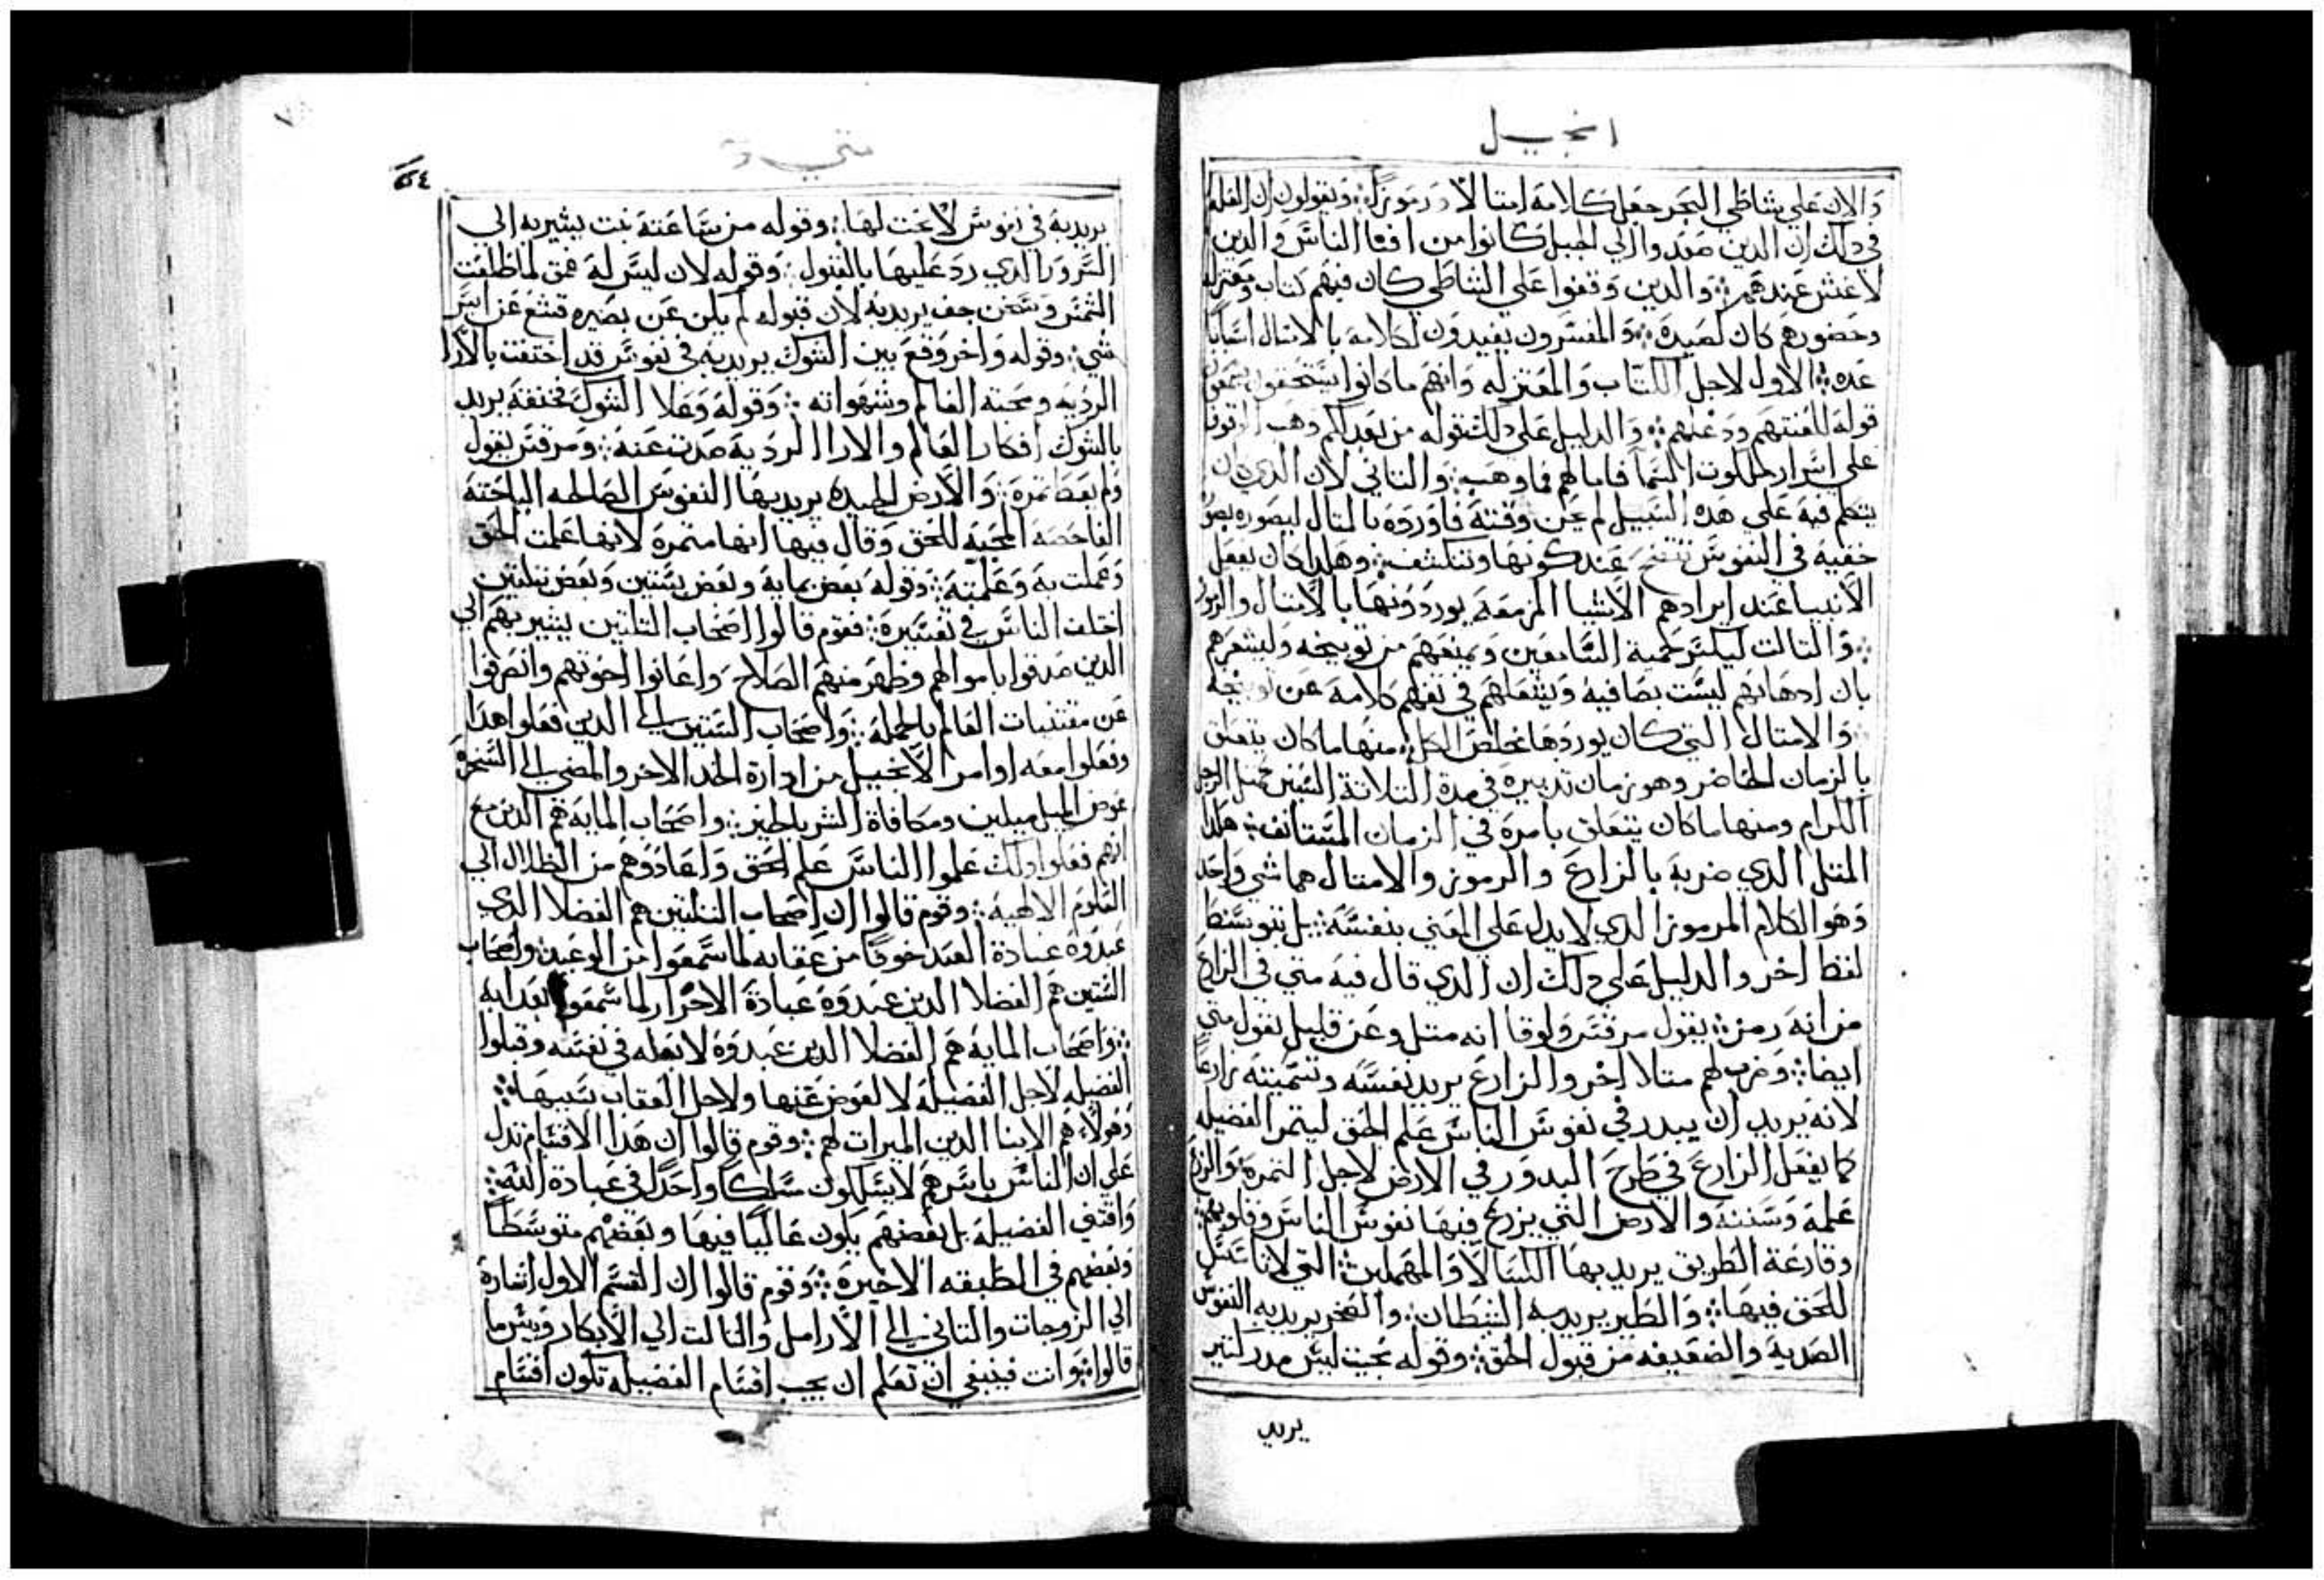 انجيل
والان علي شاطي البحر جعل كلامه امتالا ورموزاً ويقولون ان العله
في دلك ان الدين صعدوا الي الجبل كانوا من افنا الناس والدين
لا غش عندهم والدين وقفوا علي الشاطي كان فيهم كتاب ومعتزله
وحضورهم كان لصيده والمفسرون يفيدون لكلامه بالامتال اسباباً
عده الاول لاجل الكتاب والمعتزله وانهم ما كانوا يستحقون يسمعون
قوله للعنتهم ودغلهم والدليل علي دلك قوله من بعد لكم وهب الوقوف
علي اسرار ملكوت السما فاما لهم فما وهب والتاني لان الدي كان
يتكلم فيه علي هده السبيل لم يحن وقته فاورده بالمتال ليصوره بصو
خفيه في النفوس تتضح عند كونها وتنكشف وهكدا كان يفعل
الانبيا عند ايرادهم الاشيا المزمعه يوردونها بالامتال والرموز
والتالت ليكسر حمية السامعين ويمنعهم من توبيخه وليشعرهم
بان ادهانهم ليست بصافيه ويشغلهم في تفهم كلامه عن توبيخه
والامتال التي كان يوردها مخلص الكل منها ما كان يتعلق
بالزمان الحاضر وهو زمان تدبيره في مدة التلاتة السنين كمتل الرجل
الكرام ومنها ما كان يتعلق بامره في الزمان المستانف هكدا
المتل الدي ضربه بالزارع والرموز والامتال هما شي واحد
وهو الكلام المرموز الدي لا يدل علي المعني بنفسه بل بتوسط
لفظ اخر والدليل علي دلك ان الدي قال فيه متي في الزارع
من انه رمز يقول مرقس ولوقا انه متل وعن قليل يقول متي
ايضا وضرب لهم متالا اخر والزارع يريد نفسه وتسميته زارعاً
لانه يريد ان يبدر في نفوس الناس علم الحق ليتمر الفضيله
كما يفعل الزارع في طرح البدور في الارض لاجل التمره والزرع
علمه وسننه والارض التي يزرع فيها نفوس الناس وقلوبهم
وقارعة الطريق يريد بها الكسالا والمهملين التي لا تاتتل
للحق فيها والطير يريد به الشيطان والصخر يريد به النفوس
الصدية والضعيفه من قبول الحق وقوله بحيت ليس مدر كتير
يريد
متي
يريد به في نفوس لا بحت لها وقوله من ساعته نبت يشير به الي
السرور الدي رد عليها بالقبول وقوله لان ليس له عمق لما طلعت
الشمس وسخن جف يريد به لان قبوله لم يكن عن بصيره قشع عن ايسر
شي وقوله واخر وقع بين الشوك يريد به في نفوس قد اختنقت بالارا
الرديه ومحبته العالم وشهواته وقوله وعلا الشوك فخنقه يريد
بالشوك افكار العالم والارا الرديه صدت عنه ومرقس يقول
ولم يعط تمره والارض الجيده يريد بها النفوس الصالحه الباحته
الفاحصه المحبه للحق وقال فيها انها متمره لانها علمت الحق
وعملت به وعلمته وقوله بعض بمايه وبعض بستين وبعض بتلتين
اختلف الناس في تفسيره فقوم قالوا اصحاب التلتين يشير بهم الي
الدين صدقوا باموالهم وظهر منهم الصلاح واعانوا اخوتهم وانصرفوا
عن مقتنيات العالم بالجمله واصحاب الستين الي الدين فعلوا هدا
وفعلوا معه اوامر الانجيل من ادارة الخد الاخر والمضي الي السخره
عوض الميل ميلين ومكافاة الشر بالخير واصحاب المايه هم الدين مع
انهم فعلوا دلك علموا الناس علم الحق واعادوهم من الظلال الي
العلوم الالهيه وقوم قالوا ان اصحاب التلتين هم الفضلا الدي
عبدوه عبادة العبد خوفاً من عقابه لما سمعوا من الوعيد واصحاب
الستين هم الفضلا الدين عبدوه عبادة الاحرار لما سمعوا بعدابه
واصحاب المايه هم الفضلا الدين عبدوه لا لعله في نفسه وقبلوا
الفضيله لاجل الفضيله لا لعوض عنها ولاجل العقاب بسببها
وهولاء هم الابنا الدين الميرات لهم وقوم قالوا ان هدا الاقسام تدل
علي ان الناس باسرهم لا يسلكون سلكاً واحداً في عبادة الله
واقتفي الفضيله بل بعضهم يكون عالياً فيها وبعضهم متوسطاً
وبعضهم في الطبقه الاخيره وقوم قالوا ان القسم الاول اشارة
الي الزوجات والتاني الي الارامل والتالت الي الابكار وبيس ما
قالوا وانت فينبغي ان تعلم ان بحسب اقسام الفضيله تكون اقسام